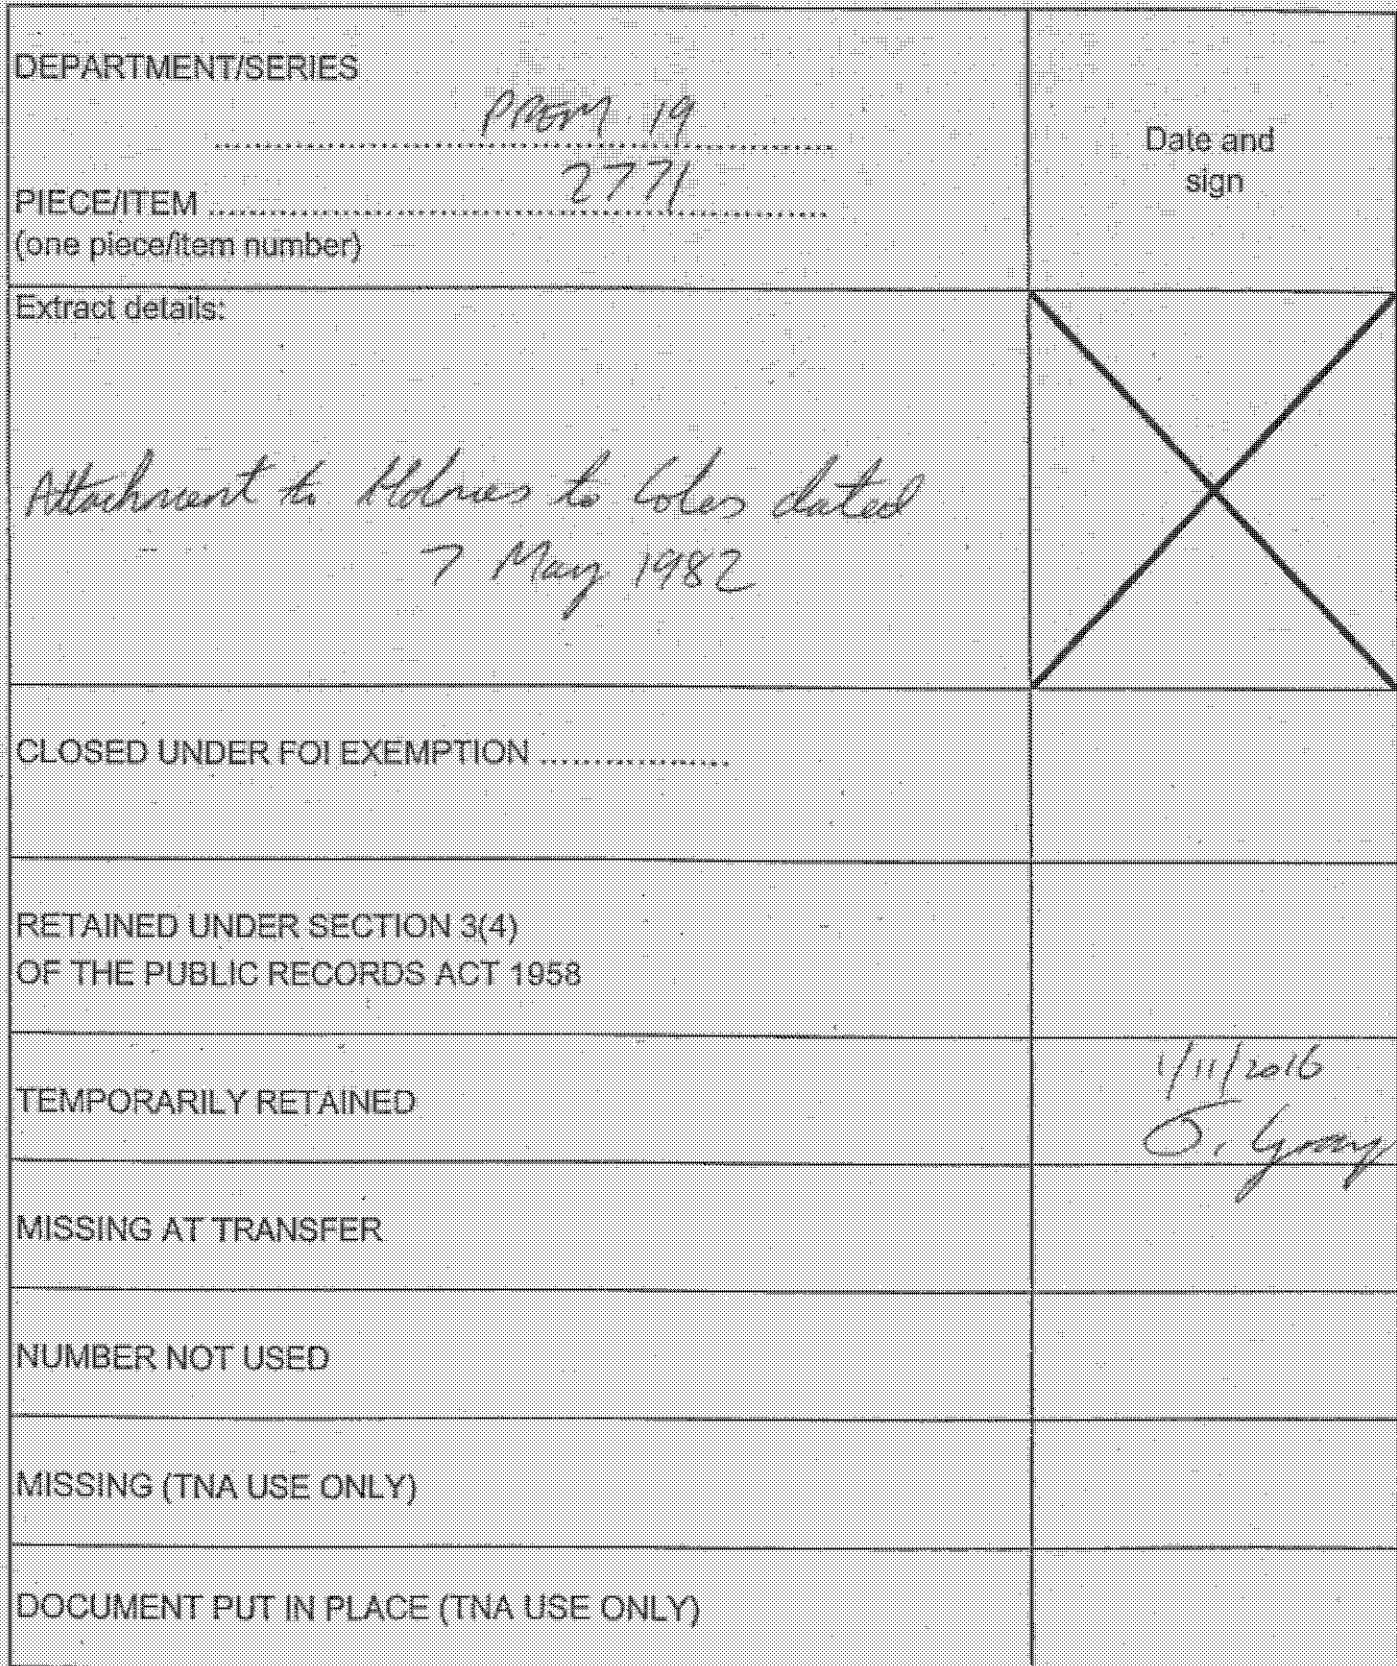 DEPARTMENT/SERIES
PREM 19
Date and
sign
PIECE/ITEM .................... 2771
(one piece/item number)
Extract details:
Attachment to Holmes to Coles dated
7 May 1982
CLOSED UNDER FOI EXEMPTION ....................
RETAINED UNDER SECTION 3(4)
OF THE PUBLIC RECORDS ACT 1958
TEMPORARILY RETAINED
1/11/2016
J. Gray
MISSING AT TRANSFER
NUMBER NOT USED
MISSING (TNA USE ONLY)
DOCUMENT PUT IN PLACE (TNA USE ONLY)